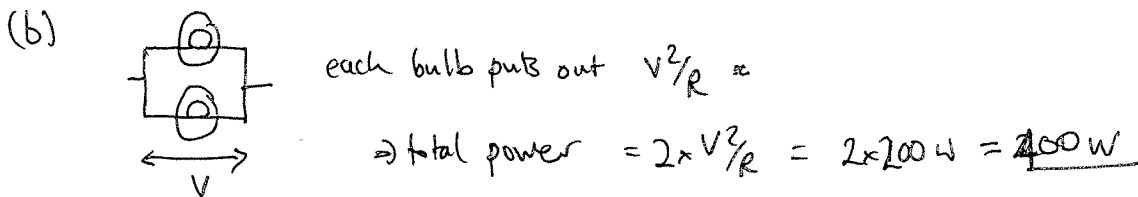 (b)
each bulb puts out V²/R =
⇒ total power = 2 × V²/R = 2×200 W = 400 W
V